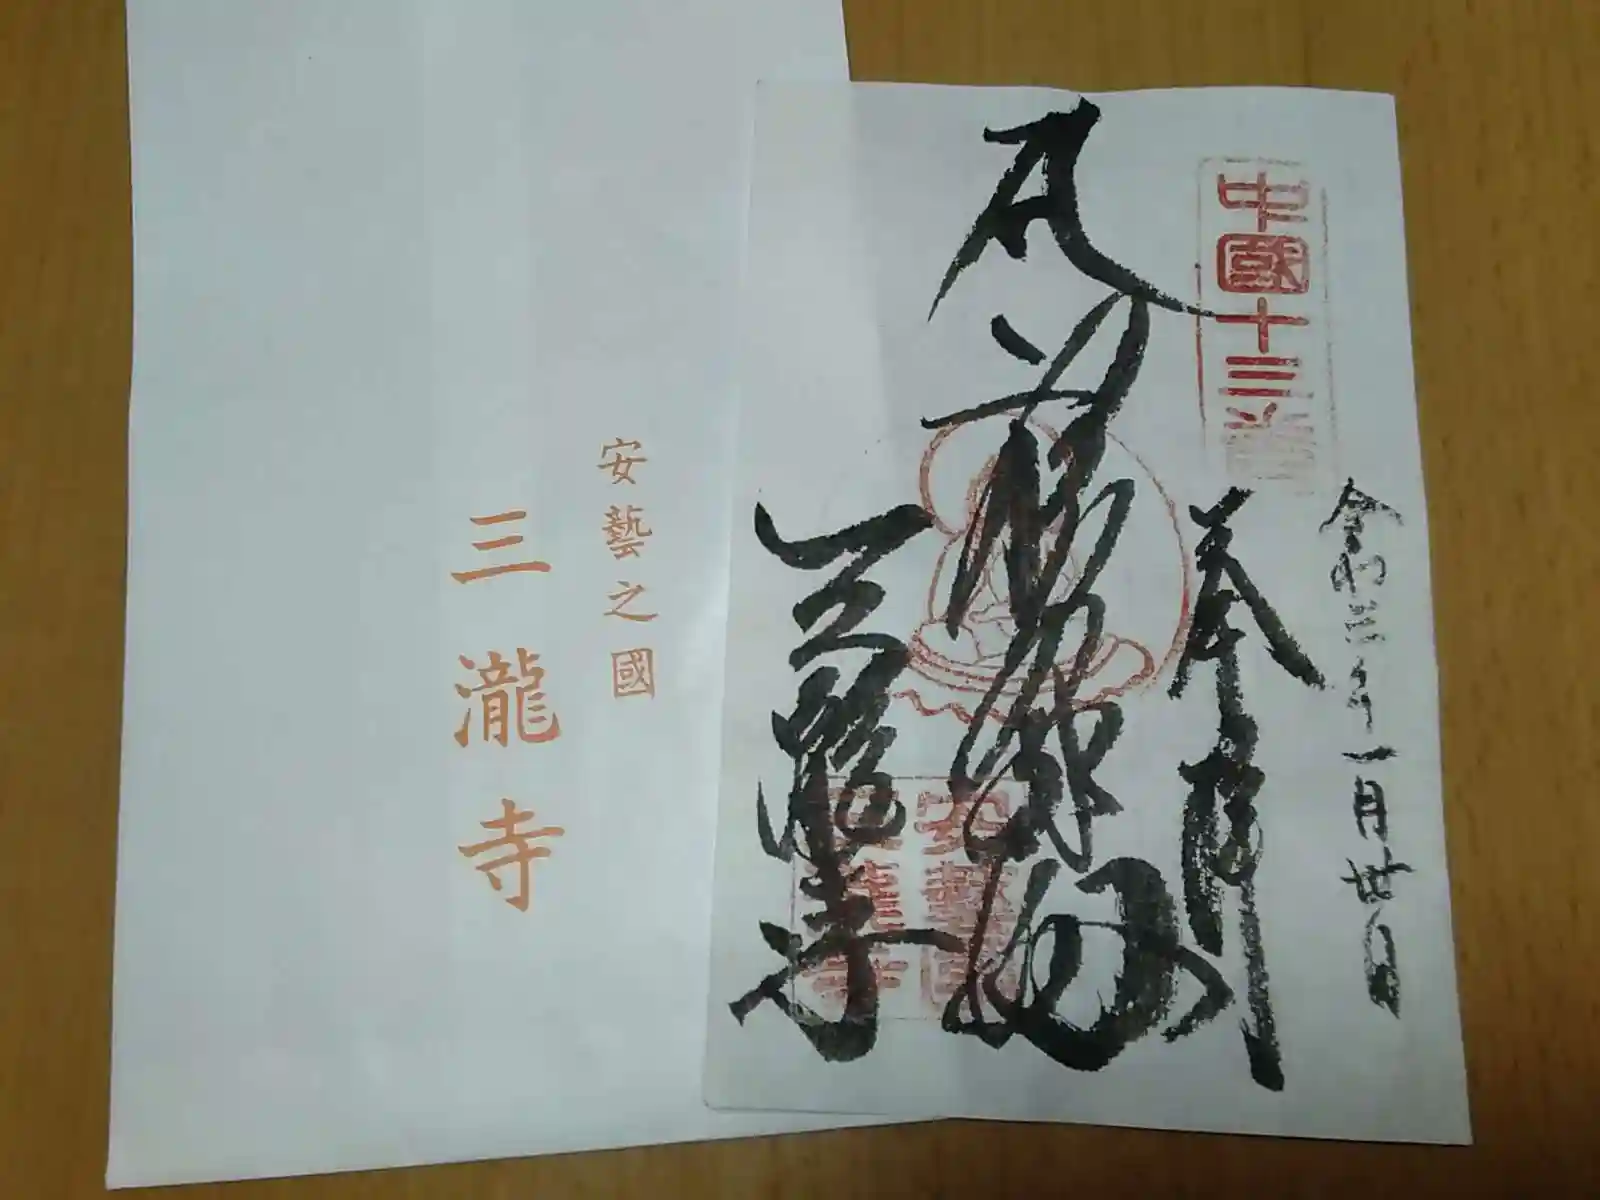 安藝之國
三瀧寺
令和三年一月卅日
中國十三番
奉拝
三瀧寺
安藝國
三瀧寺